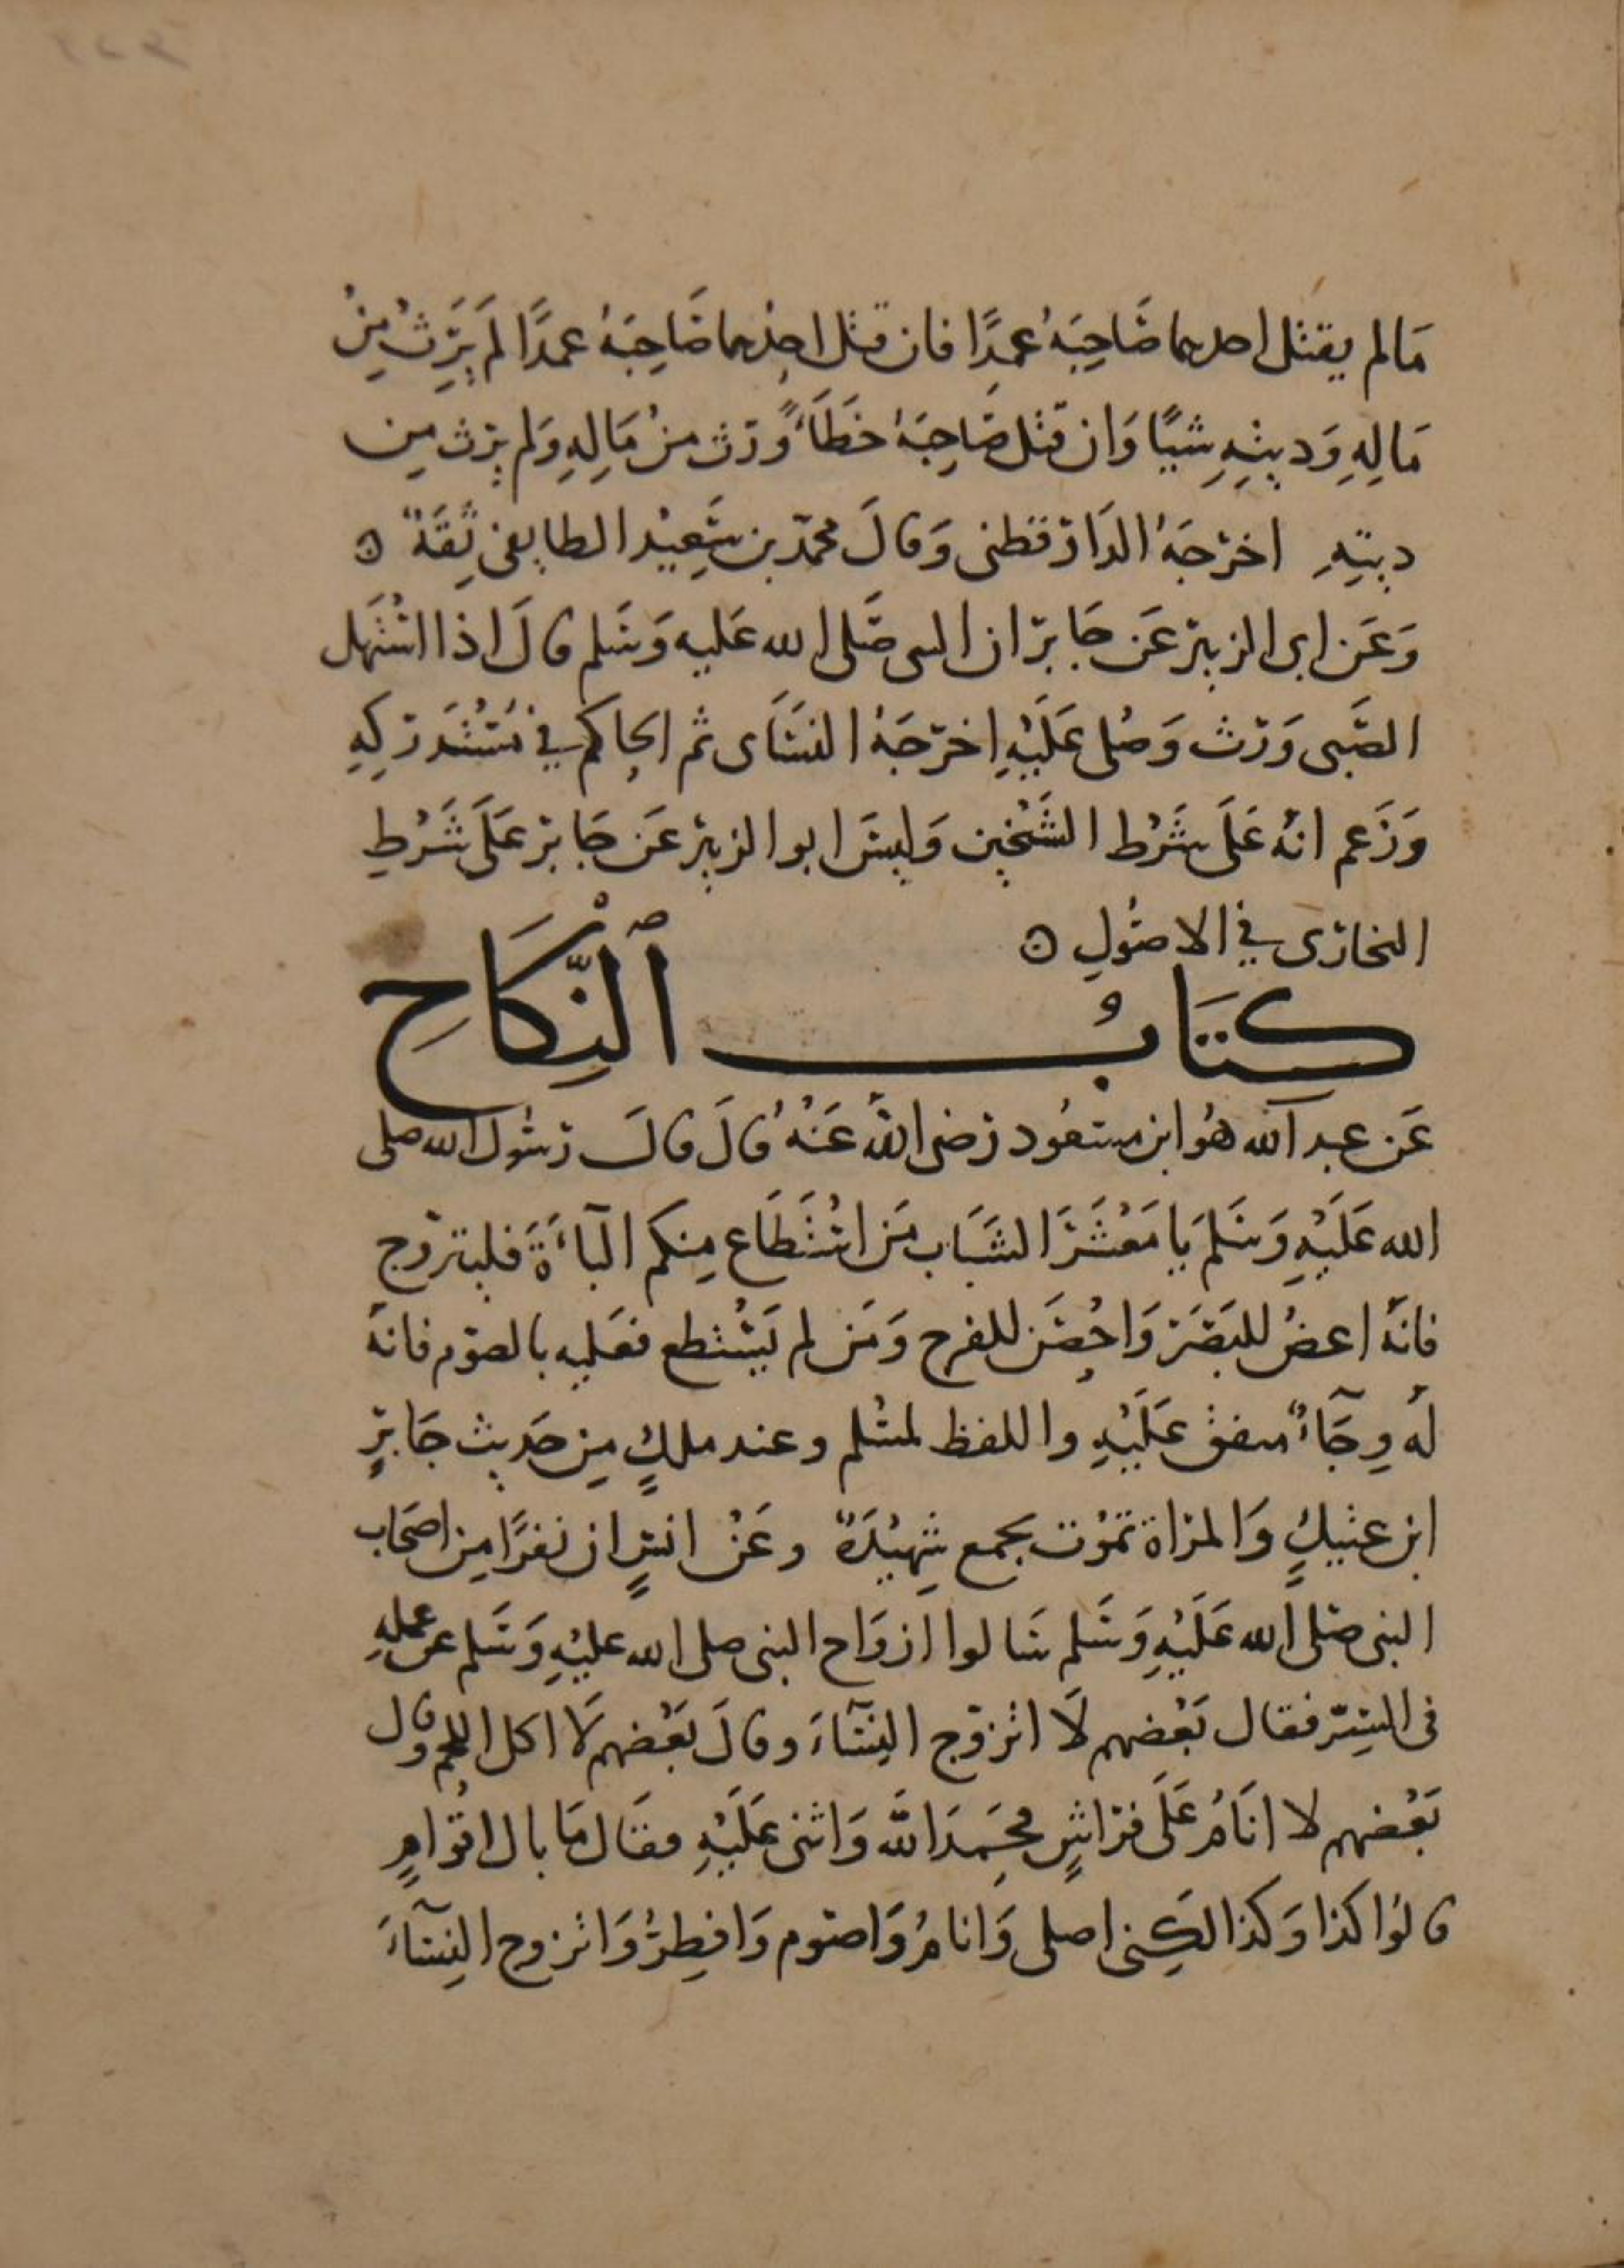 مَا لم يقتل احدهما صَاحِبَهُ عمدًا فان قتل احدهما صَاحِبَهُ عمدًا لَم يَرِث مِنْ
مَالِهِ وَديتِهِ شيًا وَان قتل صَاحِبَهُ خَطَأً وَرث منْ مَالِهِ وَلم يرث مِن
ديتِهِ اخرَجَهُ الدَارقطنى وَقالَ محمد بن سَعِيْد الطايفى ثِقَةٌ ه
وَعَن ابى الزبير عَن جَابر ان النبى صَلى الله عَليه وَسَلم قالَ اذا استَهل
الصَّبى وَرث وَصُلى عَلَيْهِ اخرَجَهُ النسَاى ثم الحاكم في مُسْتَدركِهِ
وَزَعم انهُ عَلَى شَرْط الشَيْخين وَليسَ ابو الزبير عَن جَابر عَلَى شَرْطِ
البخارى في الاصُولِ ه
كتَابُ ٱلنِّكَاحِ
عَن عبد الله هُو ابن مسعُود رَضى اللهُ عَنْهُ قالَ قالَ رسُول الله صلى
الله عَلَيْهِ وَسَلمَ يَا مَعْشَرَ الشَبَاب مَن اسْتَطَاع مِنكم البَآءَةَ فليتزوج
فانَهُ اغضُ للبَصَر وَاحْصَن للفرج وَمَن لم يَسْتطع فعَليه بالصَوم فانهُ
لهُ وِجَآءٌ متفق عَلَيْهِ واللفظ لمسْلم وعند ملكٍ مِن حَديث جَابرٍ
ابن عتيكٍ وَالمرْاة تموْت بجمع شَهِيْدَةٌ وعَنْ انسٍ ان نفرًا مِن اصحَاب
النبى صَلى الله عَلَيْهِ وَسَلم سَالوا ازوَاج النبى صلى الله عليْهِ وَسَلم عن عَملهِ
فى السِر فقال بَعْضهم لَا اتزوّج النِسَآءَ وقالَ بَعْضهم لَا اكل اللحم وقال
بَعْضهم لا انَامُ عَلَى فرَاشٍ فحَمِدَ اللهَ وَاثنى عَلَيْهِ فقال مَا بال اقوَامٍ
قالوُا كذا وَكذا لكِنى اصلى وَانامُ وَاصوم وَافطِرُ وَاتزوج النِسَآءَ